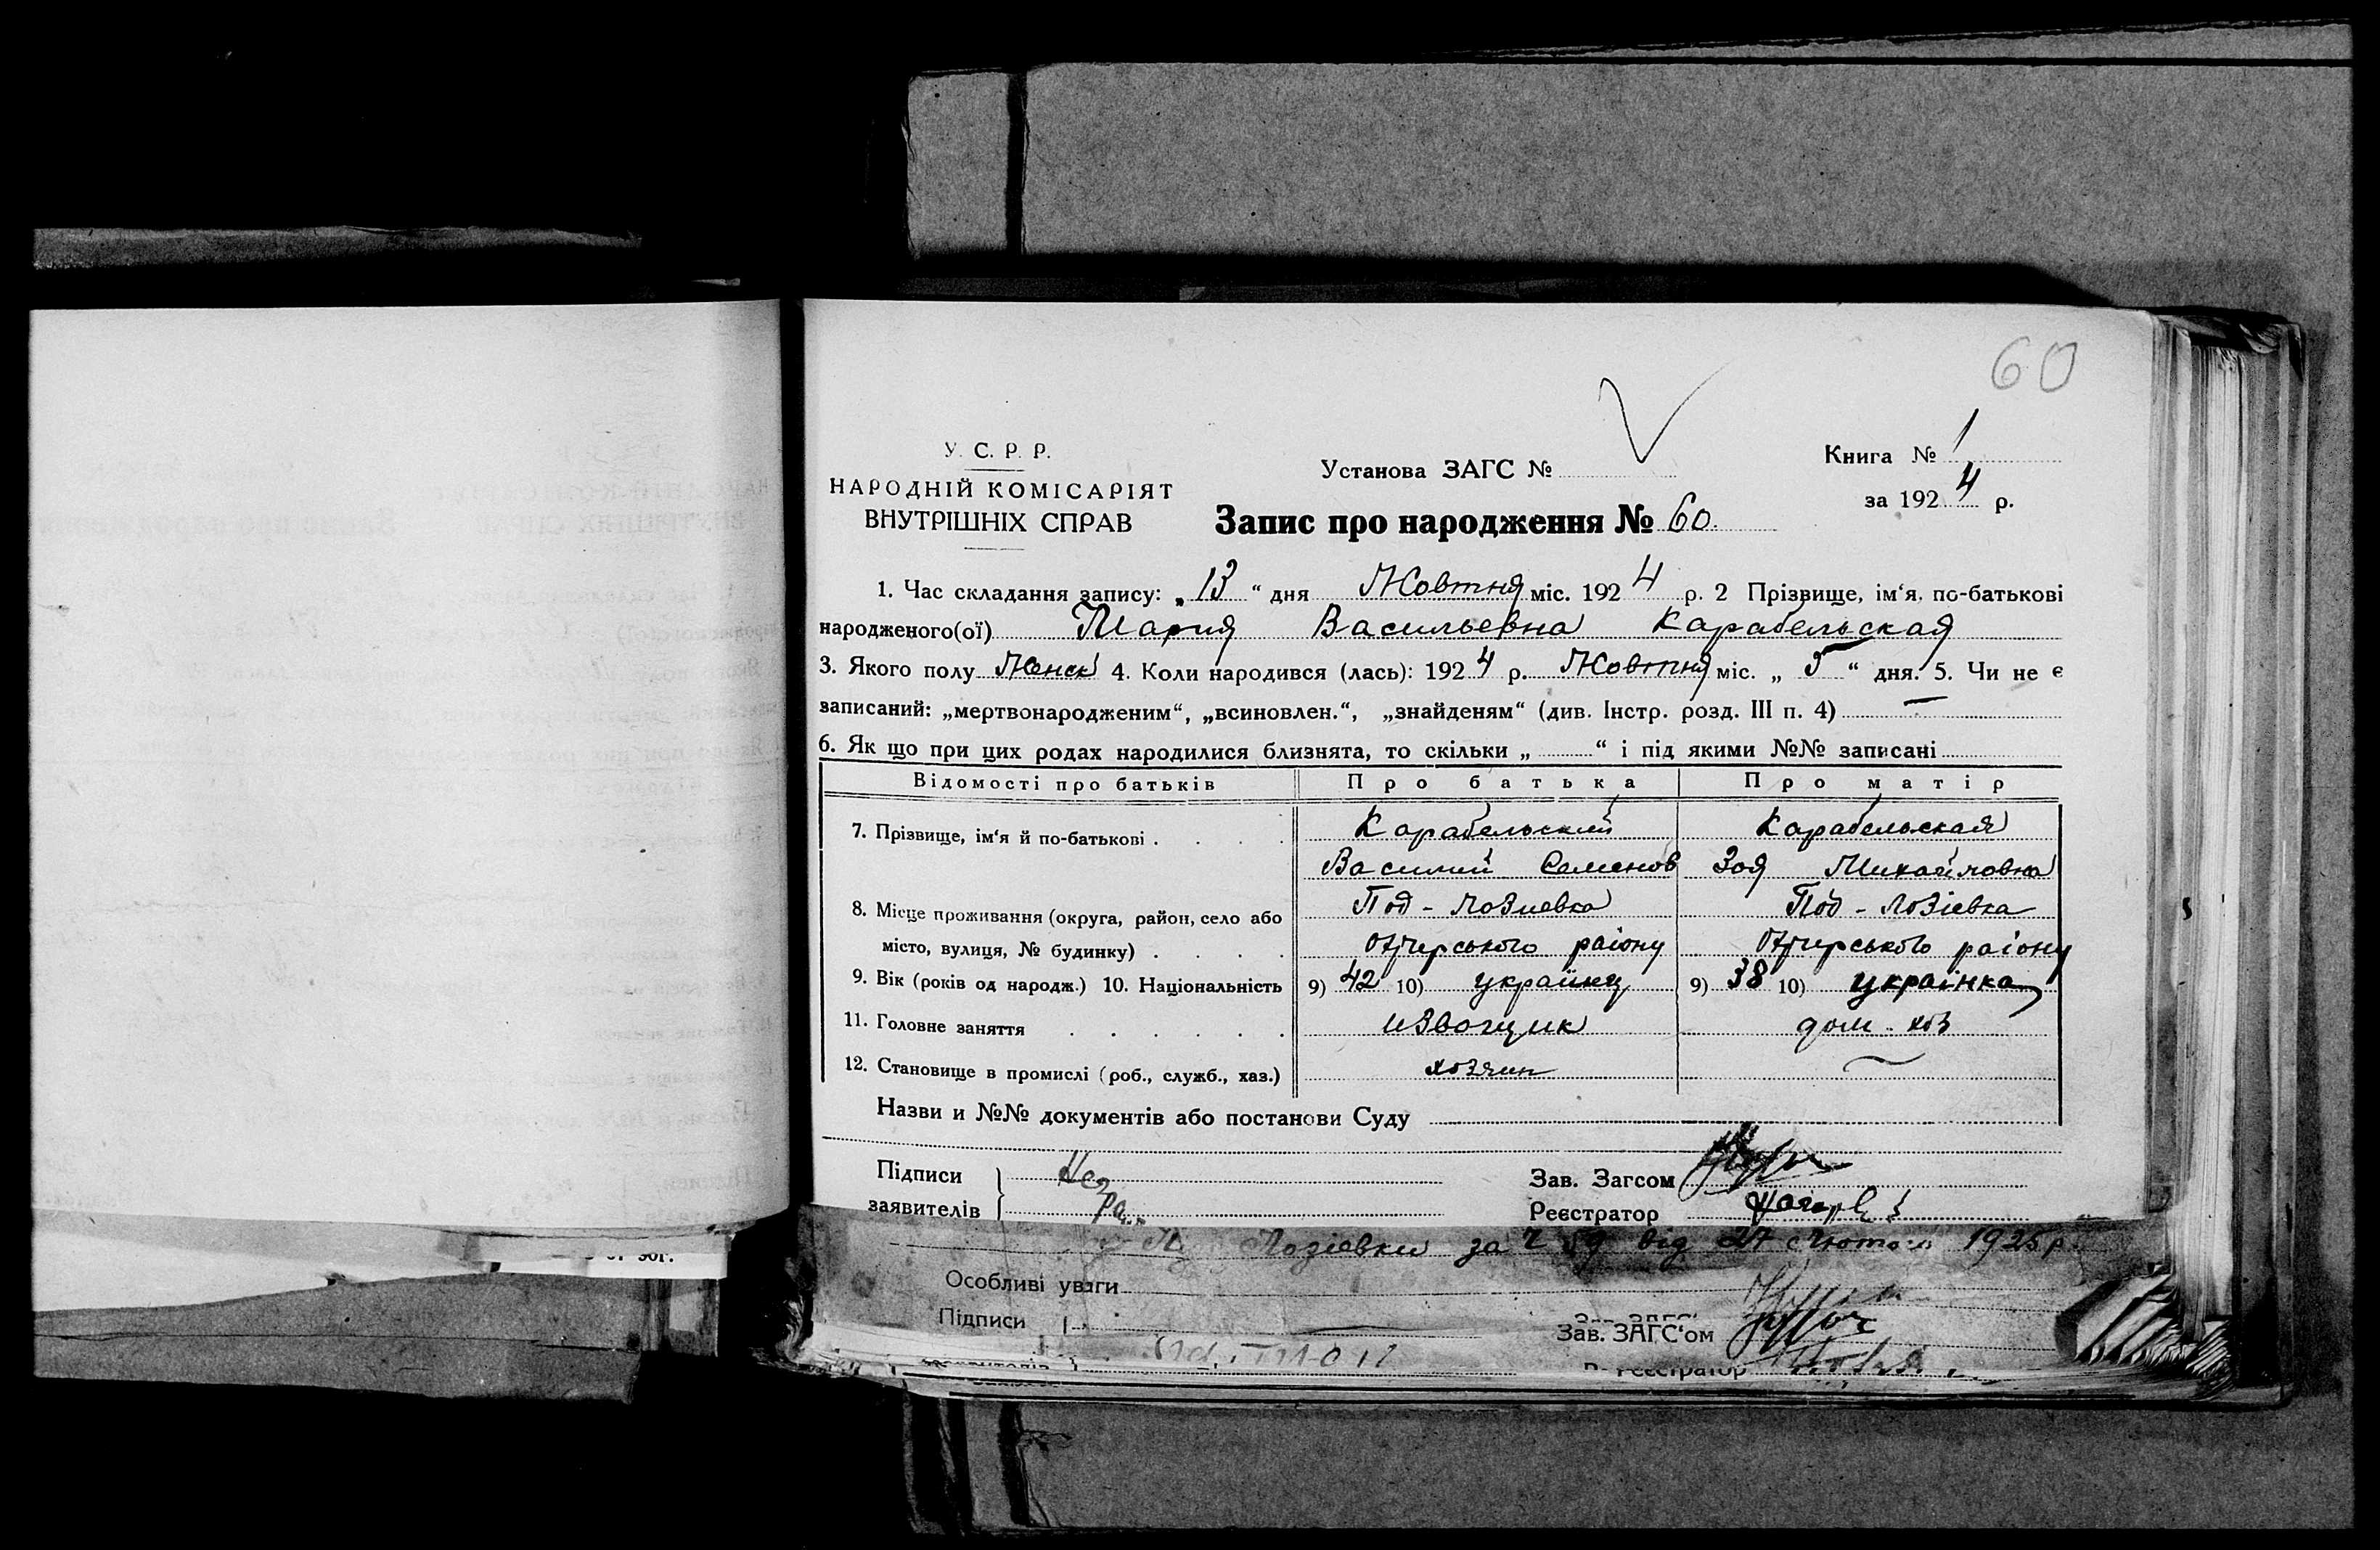 60
У. С. Р. Р.
НАРОДНІЙ КОМІСАРІЯТ
ВНУТРІШНІХ СПРАВ
Установа ЗАГС №
Запис про народження № 60.
Книга № 1
за 1924 р.
1. Час складання запису: „13“ дня Жовтня міс. 1924 р. 2 Прізвище, ім‘я, по-батькові
народженого(ої) Мария Васильевна Карабельская
3. Якого полу Женск 4. Коли народився (лась): 1924 р. Жовтня міс. „5“ дня. 5. Чи не є
записаний: „мертвонародженим“, „всиновлен.“, „знайденям“ (див. Інстр. розд. III п. 4) —
6. Як що при цих родах народилися близнята, то скільки „ “ і під якими №№ записані
Відомості про батьків Про батька Про матір
7. Прізвище, ім‘я й по-батькові . . . . Карабельский Карабельская
Василий Семенов Зоя Михайловна
8. Місце проживання (округа, район, село або Под-Лозиевка Под-Лозіевка
місто, вулиця, № будинку) . . . . району району
9. Вік (років од народж.) 10. Національність 9) 42 10) українец 9) 38 10) українка
11. Головне заняття . . . . . . Извощик дом. хоз
12. Становище в промислі (роб., служб., хаз.) хозяин —
Назви и №№ документів або постанови Суду
Підписи Нез Зав. Загсом
заявителів Реєстратор
Лозіевки за № 59 від 27 Лютого 1925 р.
Особливі уваги
Підписи Зав. ЗАГС‘ом
Реєстратор